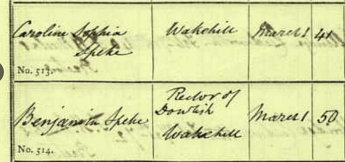 Caroline Sophia Speke Wakehill March 1 41
No. 513.
Benjamin Speke Rector of Dowlish Wakehill March 1 50
No. 514.